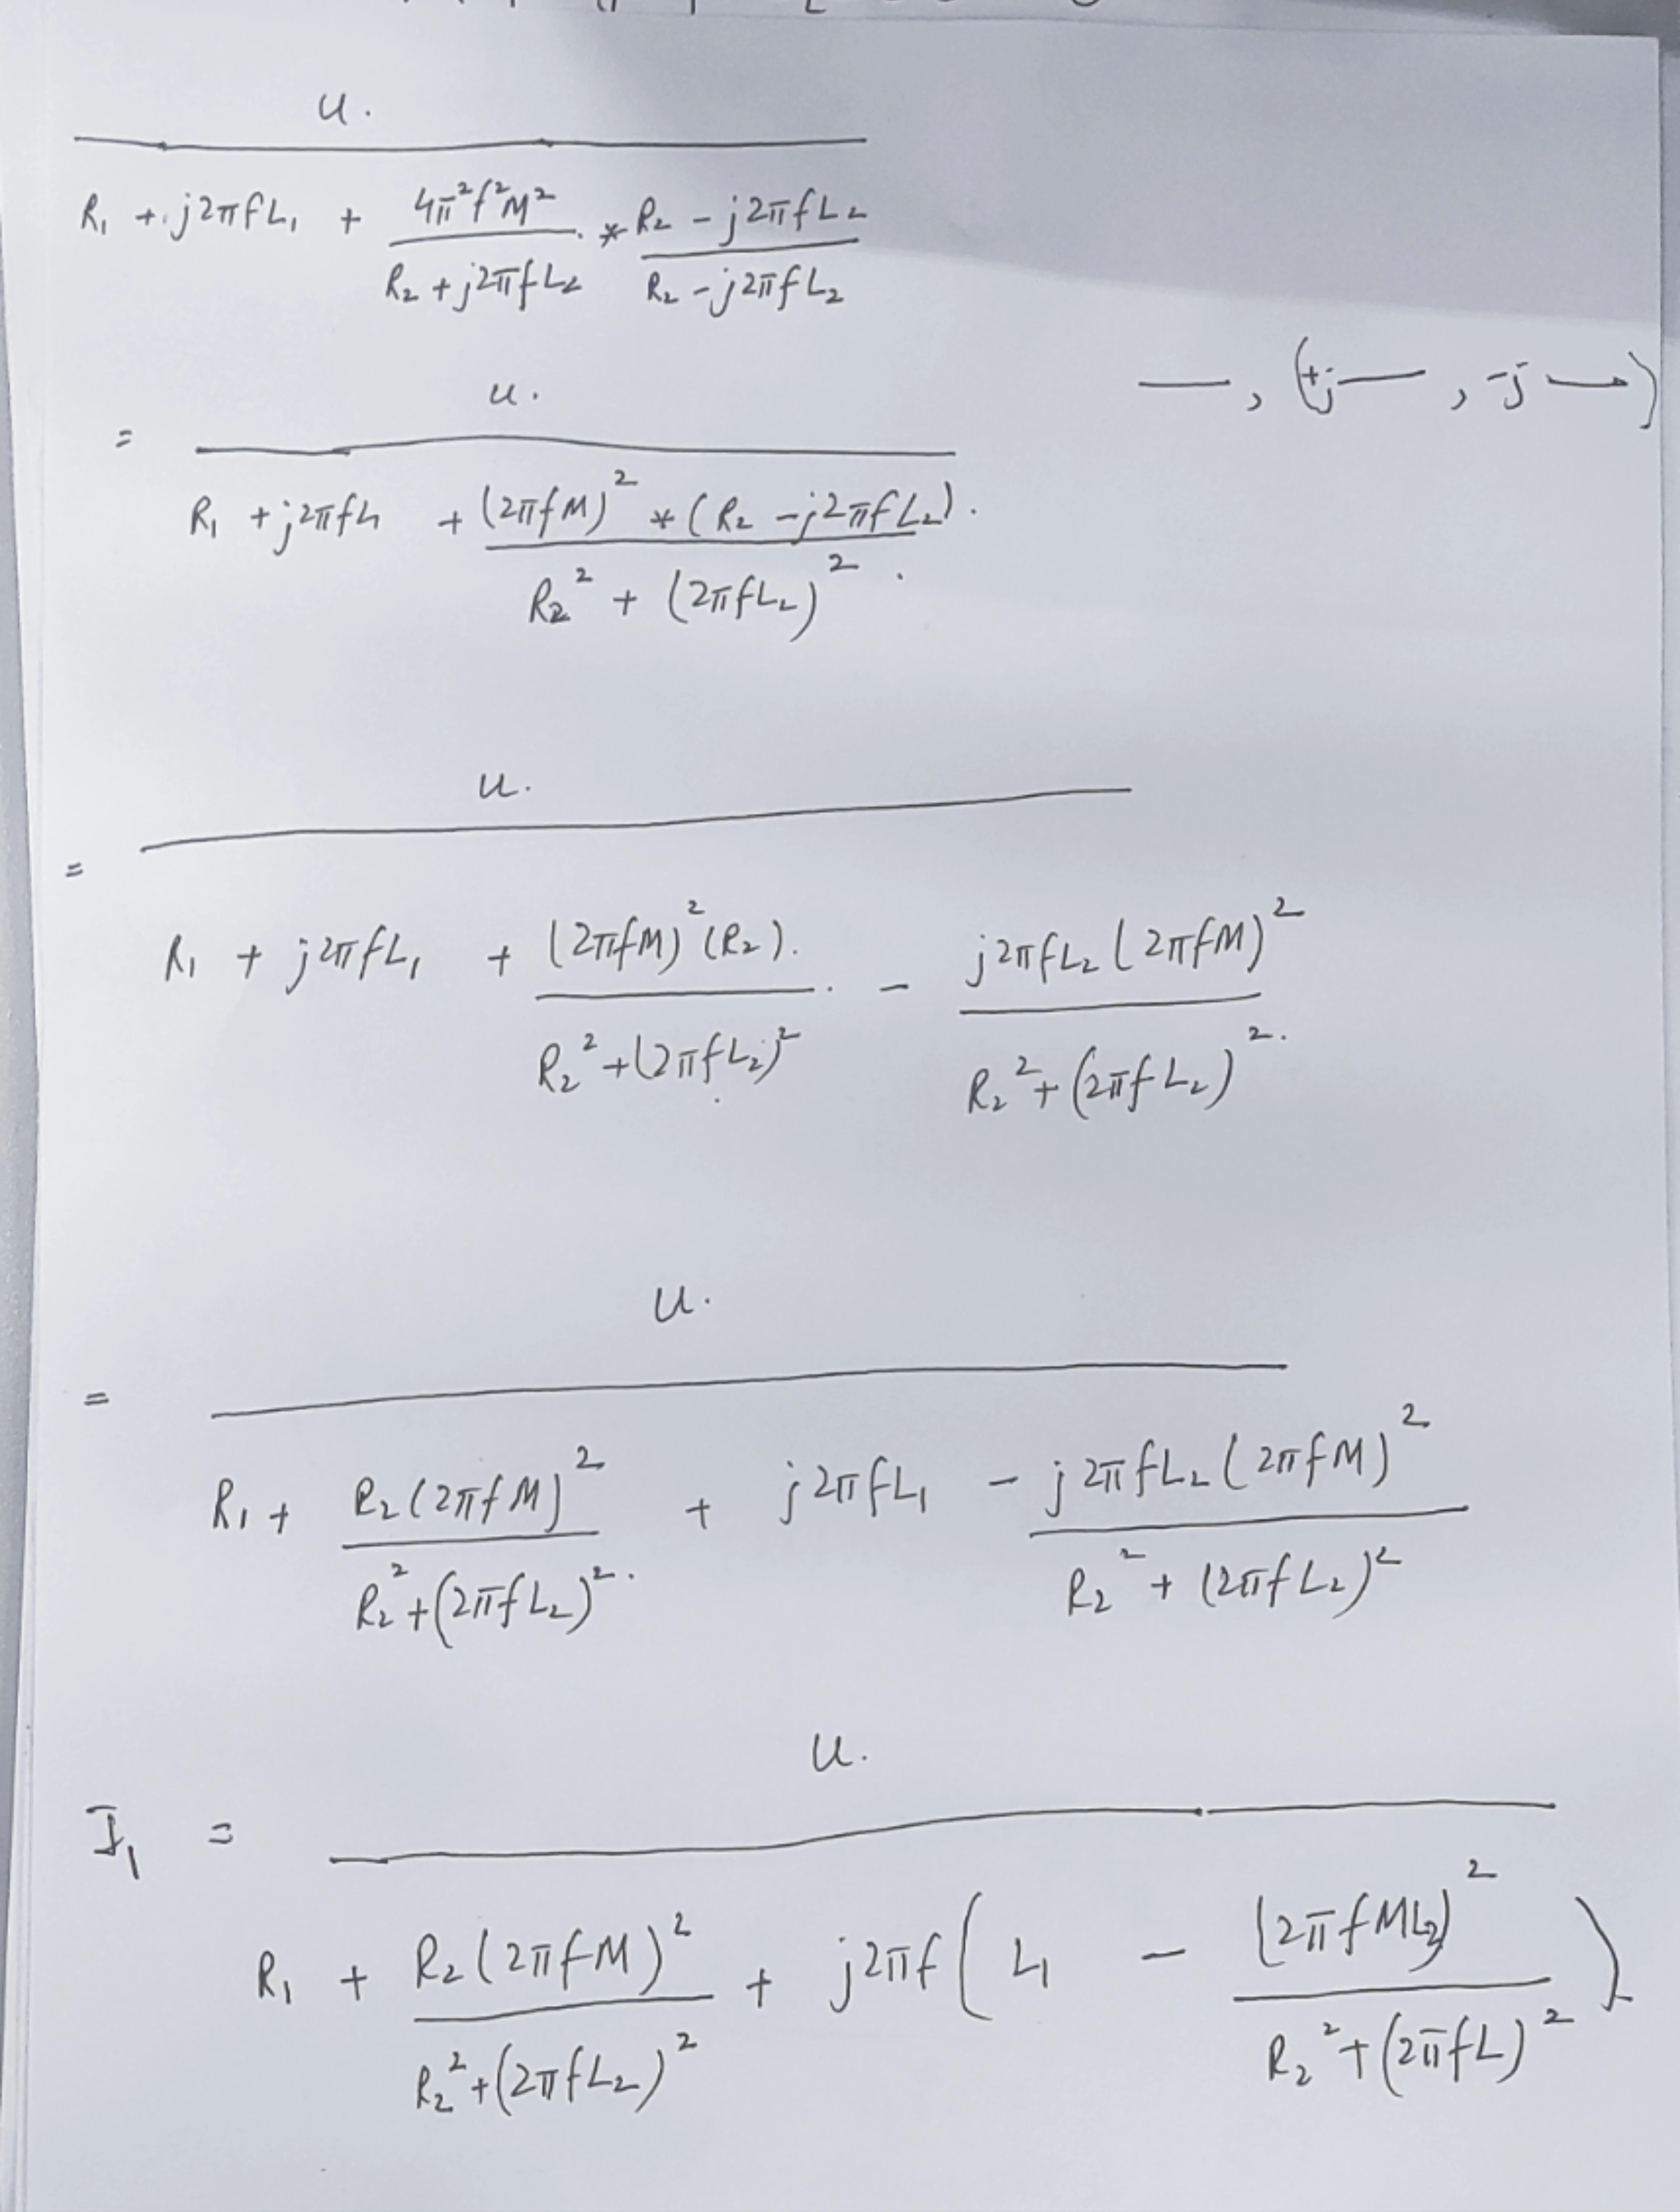 u.
R₁ + j2πfL₁ + 4π²f²M² / R₂ + j2πfL₂ * R₂ - j2πfL₂ / R₂ - j2πfL₂
—, (+j—, -j—)
= u.
R₁ + j2πfL₁ + (2πfM)² * (R₂ - j2πfL₂). / R₂² + (2πfL₂)².
= u.
R₁ + j2πfL₁ + (2πfM)²(R₂). / R₂² + (2πfL₂)² - j2πfL₂(2πfM)² / R₂² + (2πfL₂)².
= u.
R₁ + R₂(2πfM)² / R₂² + (2πfL₂)². + j2πfL₁ - j2πfL₂(2πfM)² / R₂² + (2πfL₂)²
I₁ = u.
R₁ + R₂(2πfM)² / R₂² + (2πfL₂)² + j2πf(L₁ - (2πfML₂)² / R₂² + (2πfL)²)